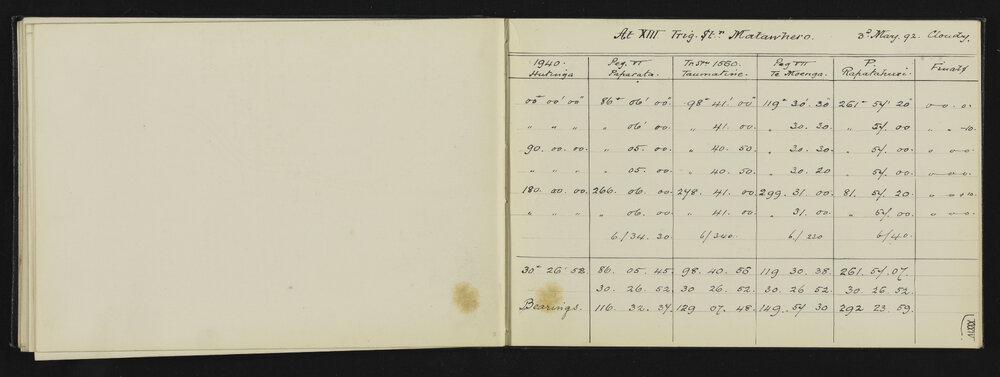 At XIII Trig. Stn Matawhero. 3d May. 92. Cloudy.
1940. Peg. VI Tr Stn 1560. Peg VII P. Finals
Hutinga Paparata. Taumatine. Te Moenga. Rapatahuri.
00° 00' 00" 86° 06' 00" 98° 41' 00" 119° 30' 30" 261° 54' 20" 0-0. 0.
" " " " 06' 00. " 41. 00. " 30. 30. " 54. 00 " " -10.
90. 00. 00. " 05. 00. " 40. 50. " 30. 30. " 54. 00. " 0-0.
" " " " 05. 00. " 40. 50. " 30. 20 " 54. 00. 0-0-0.
180. 00. 00. 266. 06. 00. 278. 41. 00. 299. 31. 00. 81. 54. 20.
" " " " 06. 00. " 41. 00. " 31. 00. " 54. 00. " 0-0.
6/34. 30. 6/340. 6/230 6/40.
30° 26' 52 86. 05. 45. 98. 40. 56 119. 30. 38. 261. 54. 07.
30. 26. 52. 30. 26. 52. 30. 26. 52 30. 26. 52.
Bearings. 116. 32. 37. 129. 07. 48. 149. 57 30 292 23. 59.